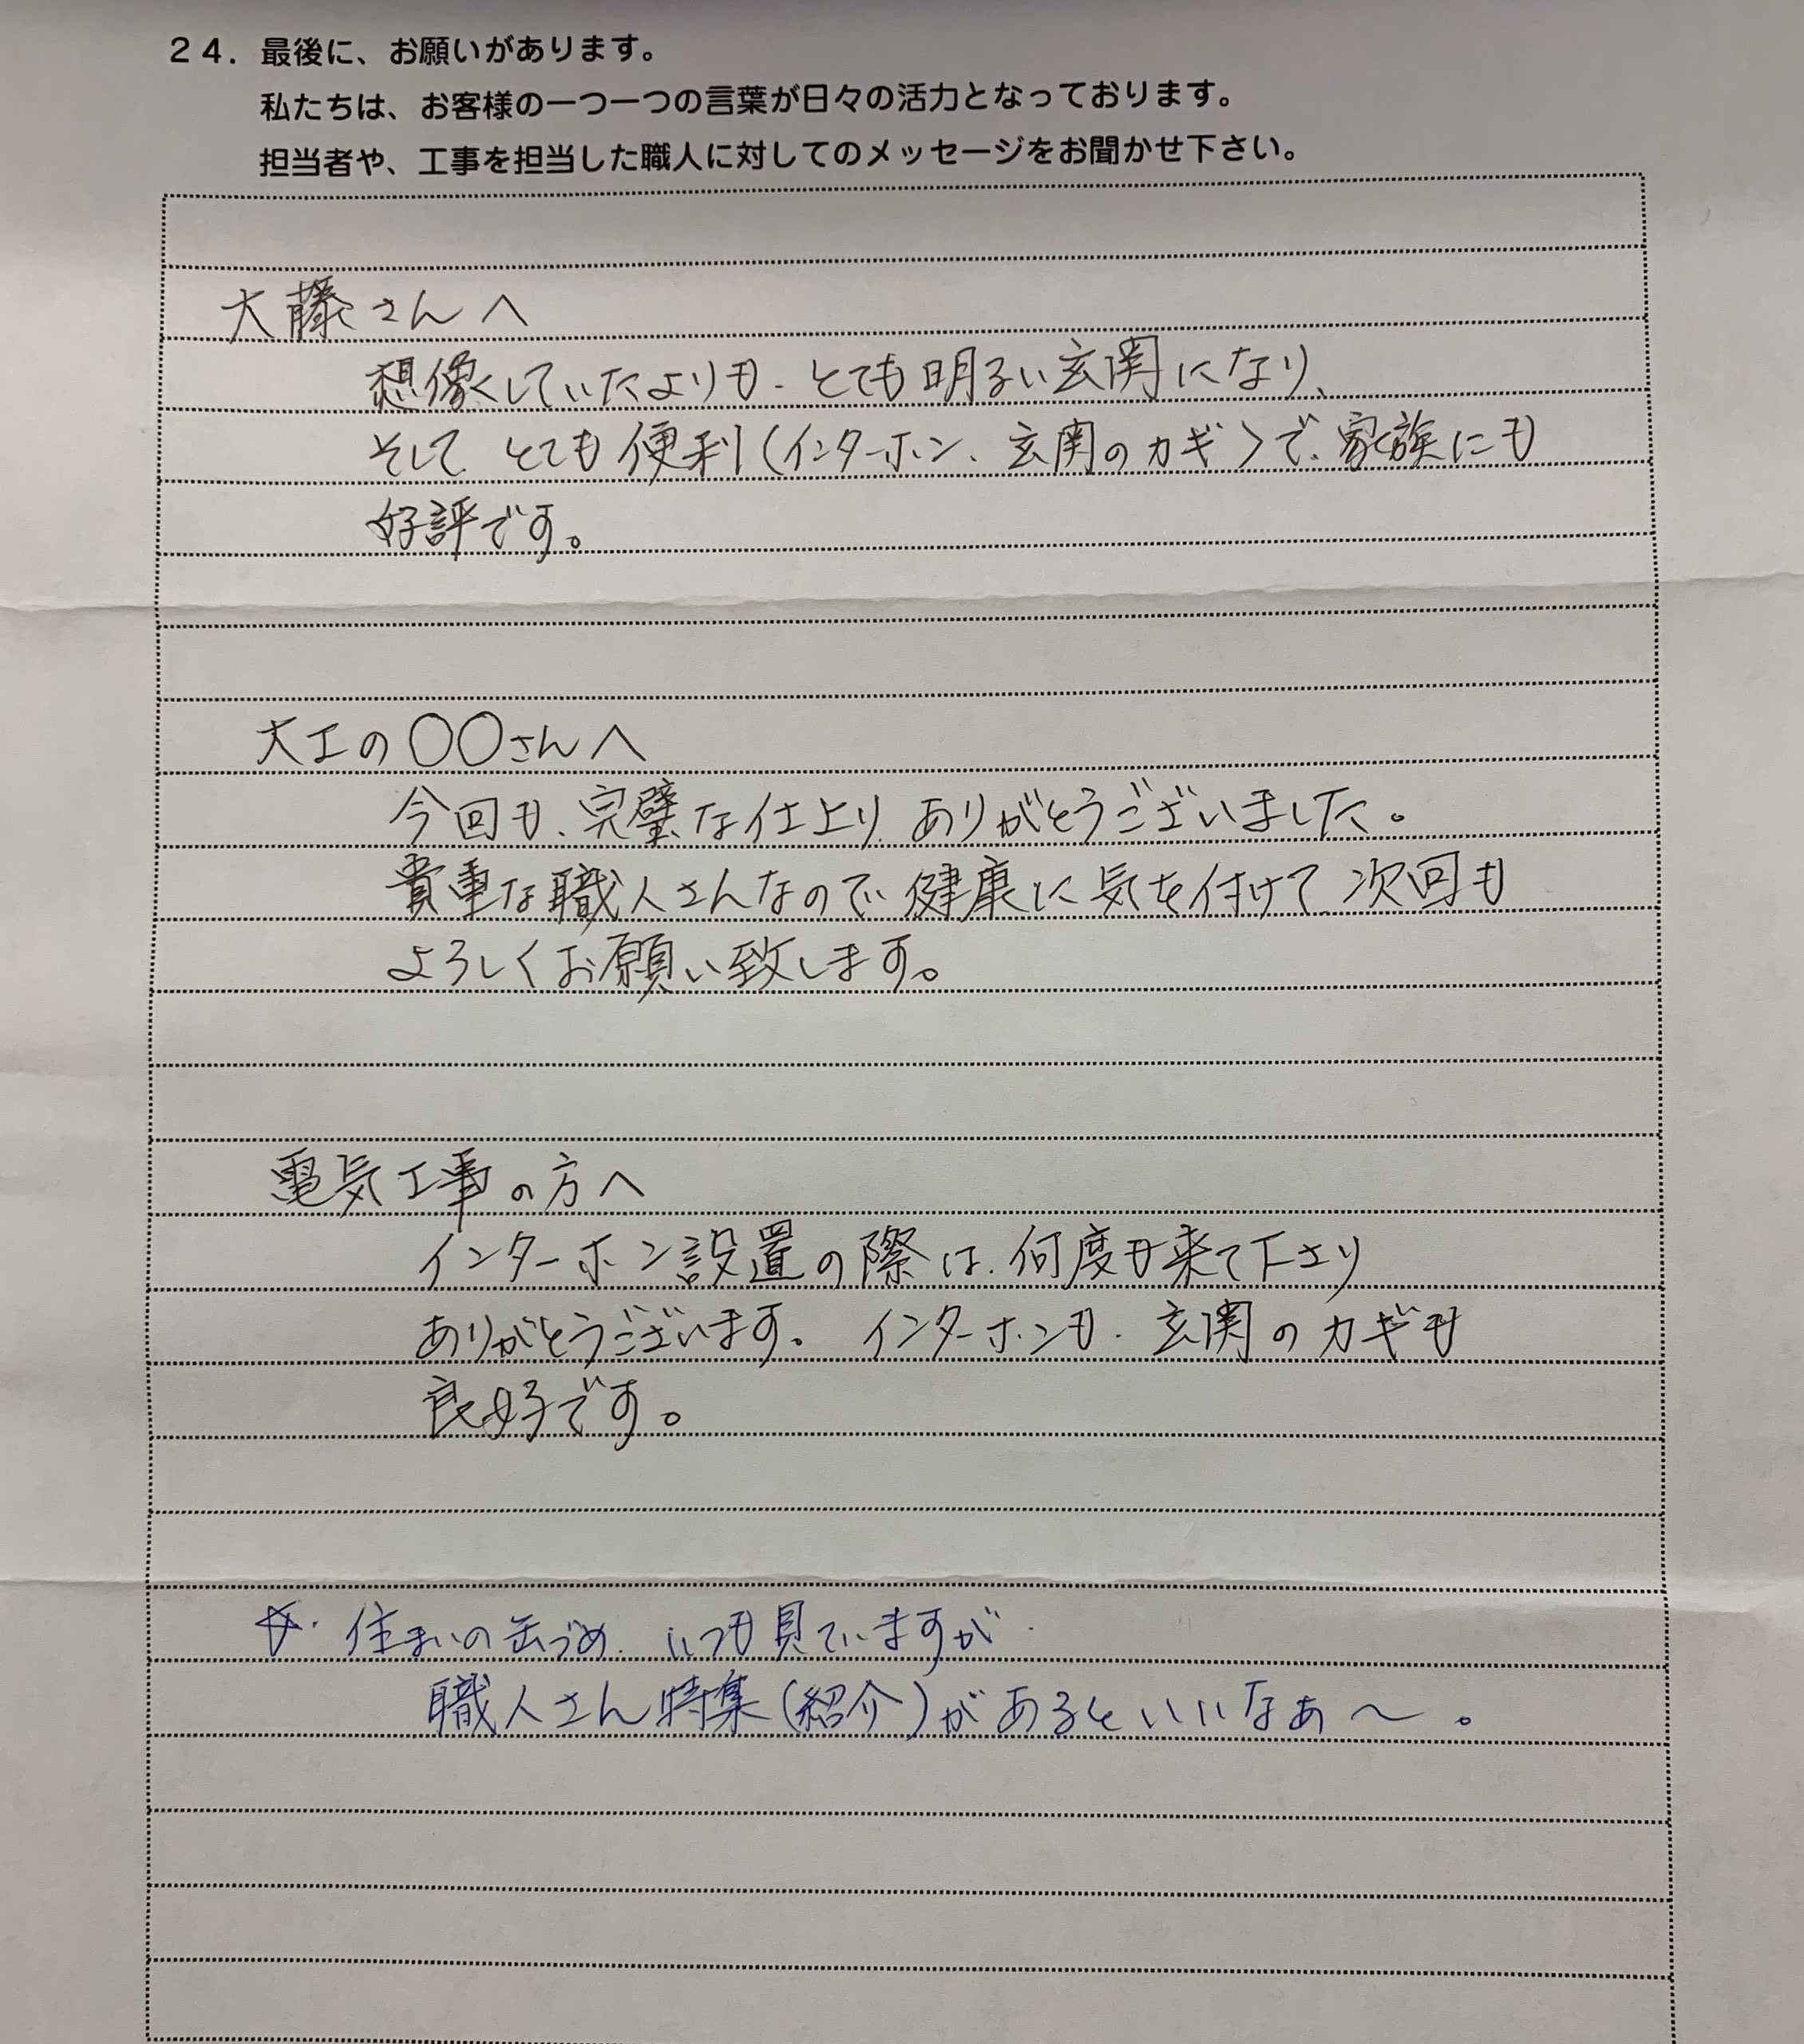 24. 最後に、お願いがあります。
私たちは、お客様の一つ一つの言葉が日々の活力となっております。
担当者や、工事を担当した職人に対してのメッセージをお聞かせ下さい。
大藤さんへ
想像していたよりも、とても明るい玄関になり、
そして、とても便利(インターホン、玄関のカギ)で、家族にも
好評です。
大工の〇〇さんへ
今回も、完璧な仕上り、ありがとうございました。
貴重な職人さんなので、健康に気を付けて、次回も
よろしくお願い致します。
電気工事の方へ
インターホン設置の際は、何度も来て下さり
ありがとうございます。 インターホンも、玄関のカギも
良好です。
☆・住まいの缶づめ、いつも見ていますが、
職人さん特集(紹介)があるといいなぁ〜。